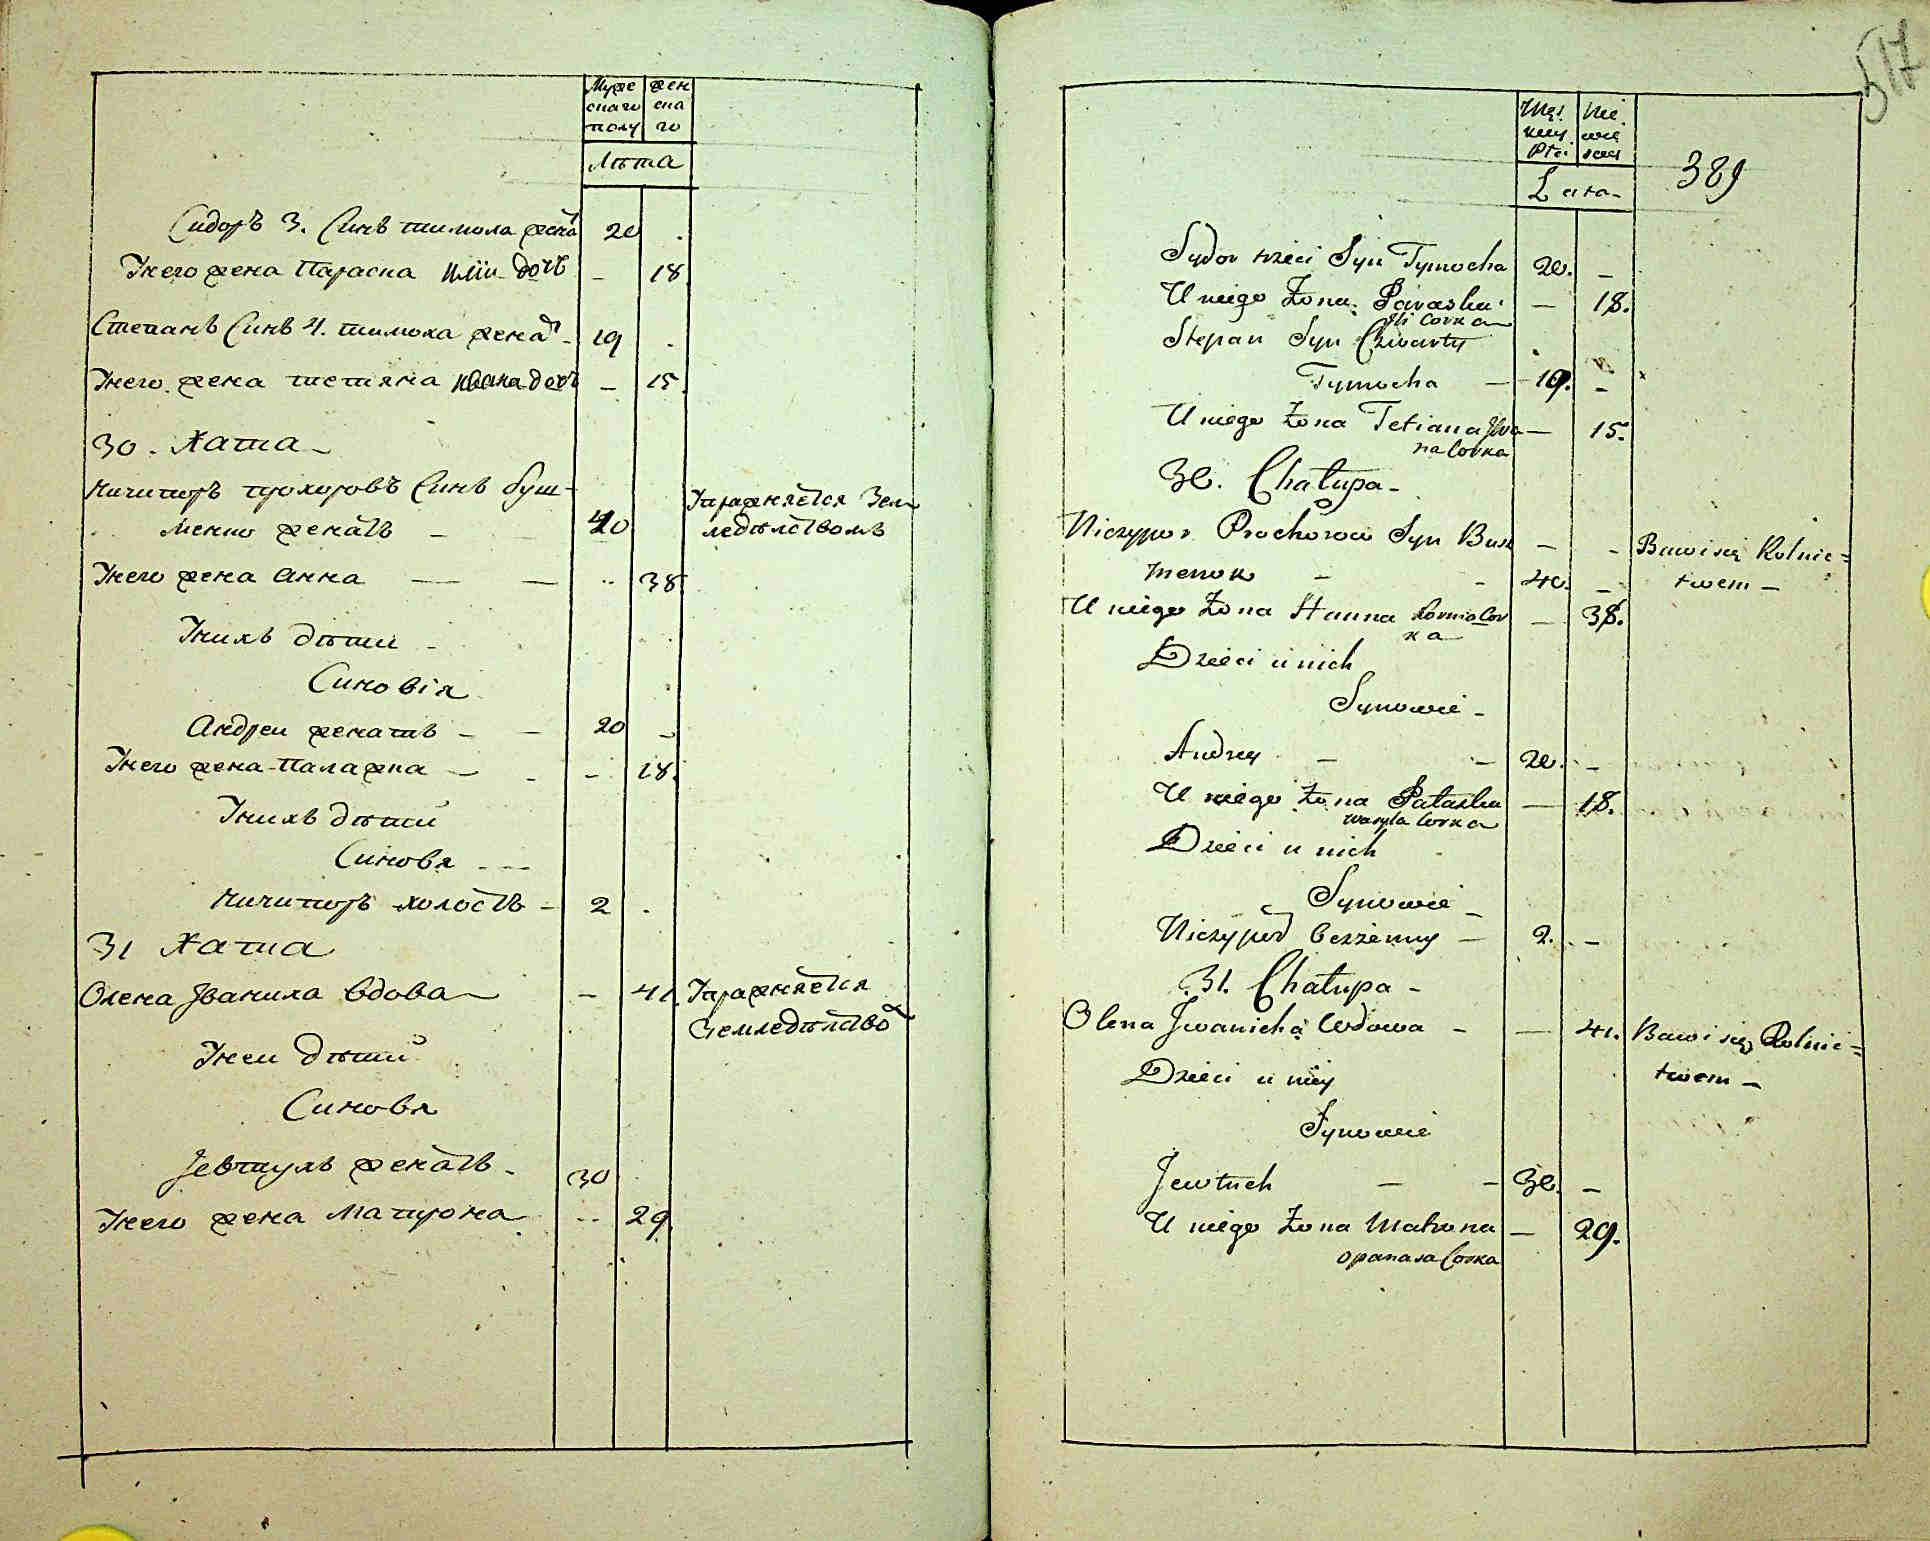 Муже жен
скаго ска
полу го
Лѣта
Сидоръ 3. Синъ тимоха жена
20
Унего жена Параска иліи дочь
18
Степанъ Синъ 4. тимоха жена
19
Унего жена тетяна ивана дочъ
15
30. Хата
Ничипоръ прохоровъ Синъ Буш-
Упражняется Зем
менко женатъ
40
ледѣлствомъ
Унего жена Анна
38
Унихъ дѣти
Синовія
Андреи женатъ
20
Унего жена Палажка
18.
Унихъ дѣти
Синовя
Ничипоръ холостъ
2
31 Хата
Олена Іваниха вдова
41.
Упражняется
Земледѣлство
Унеи дѣти
Синовя
Јевтухъ женатъ
30
Унего жена Матрона
29.
517
Męz. Nie.
kiey wie
Płci sciey
Lata
389
Sydor trzeci Syn Tymocha
20.
U niego Zona Paraska
18.
Ili Corka
Stepan Syn Czwarty
Tymocha
19.
U niego Zona Tetiana Jwa
15.
na Corka
30. Chałupa
Niczypor Prochorow Syn Busz
Bawi się Rolnic=
menok
40.
twem
U niego Zona Hanna Kornia Cor
38.
ka
Dzieci u nich
Synowie
Andrey
20.
U niego Zona Pałaska
18.
wasyla Corka
Dzieci u nich
Synowie
Niczypor bezzenny
2.
31. Chałupa
Olena Jwanicha Wdowa
41.
Bawi się Rolnic=
twem
Dzieci u niey
Synowie
Jewtuch
30.
U niego Zona Matrona
29.
opanasa Corka